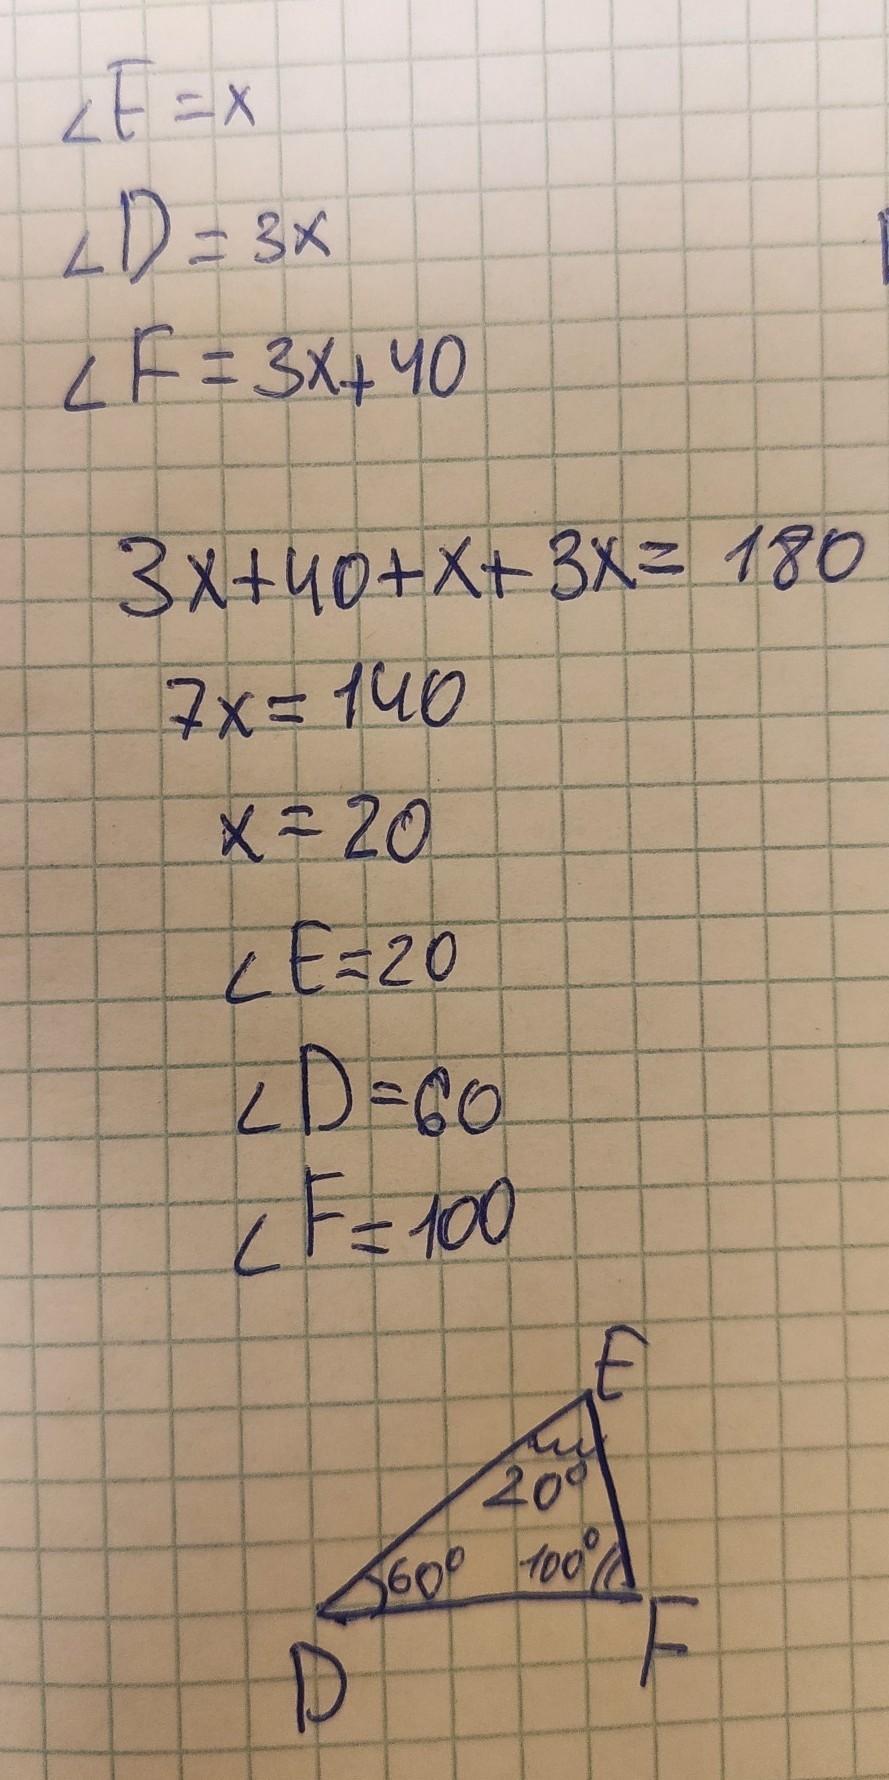 ∠E = x
∠D = 3x
∠F = 3x+40
3x+40+x+3x= 180
7x= 140
x = 20
∠E=20
∠D=60
∠F=100
E
20°
60° 100°
D F